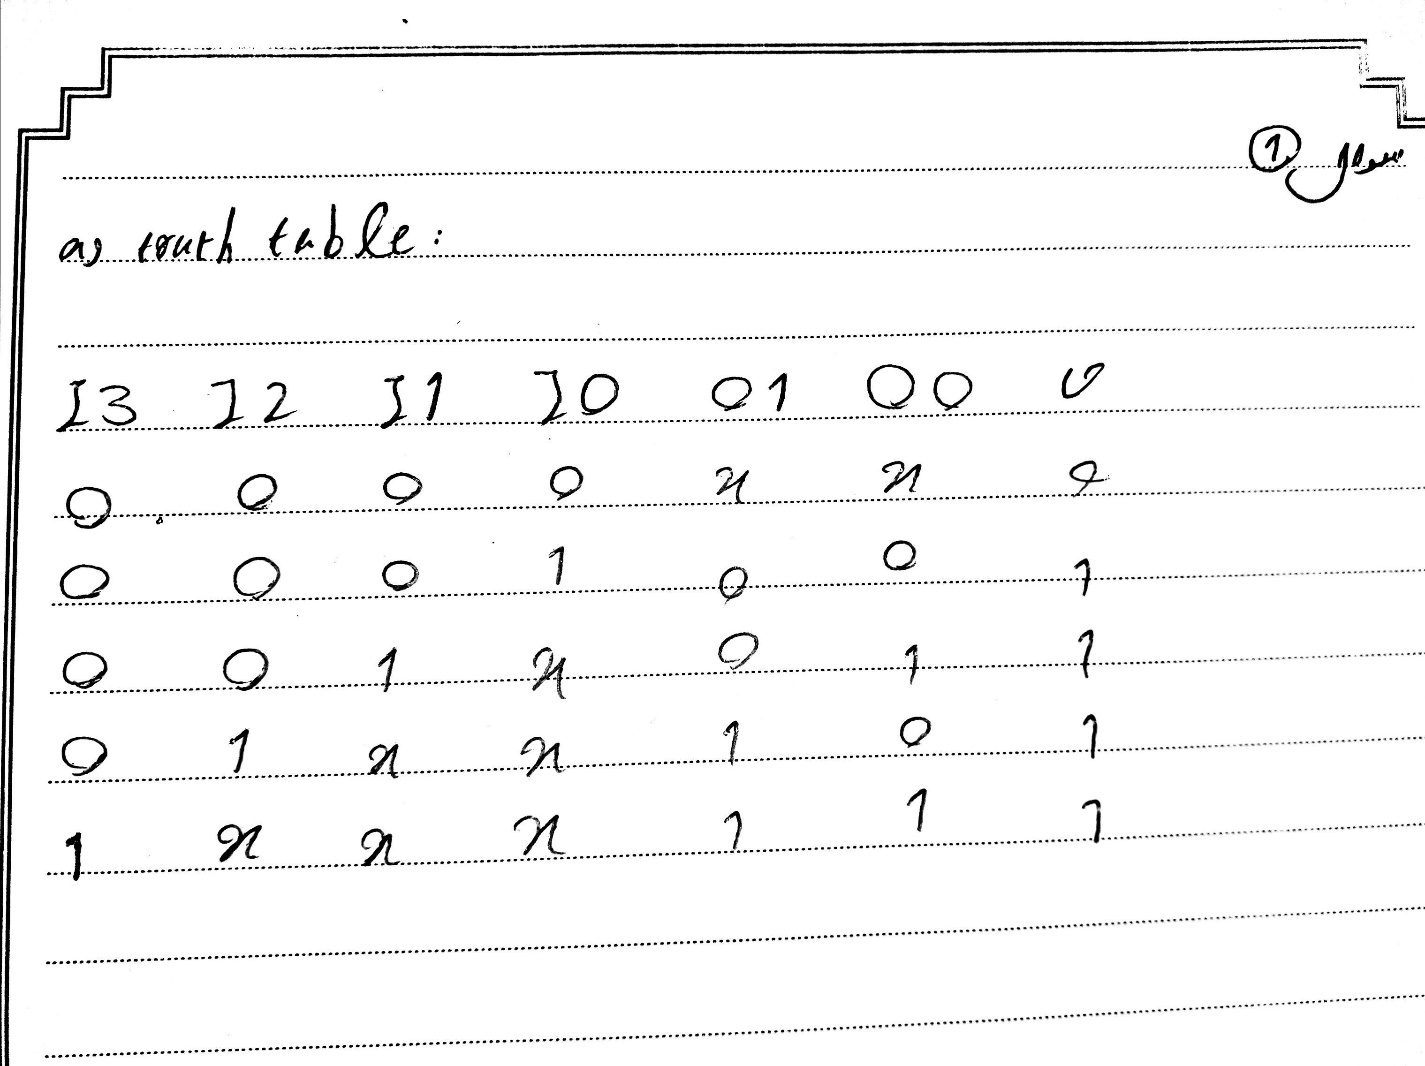 سوال ①
a) truth table:
I3 I2 I1 I0 O1 O0 V
0 0 0 0 x x 0
0 0 0 1 0 0 1
0 0 1 x 0 1 1
0 1 x x 1 0 1
1 x x x 1 1 1